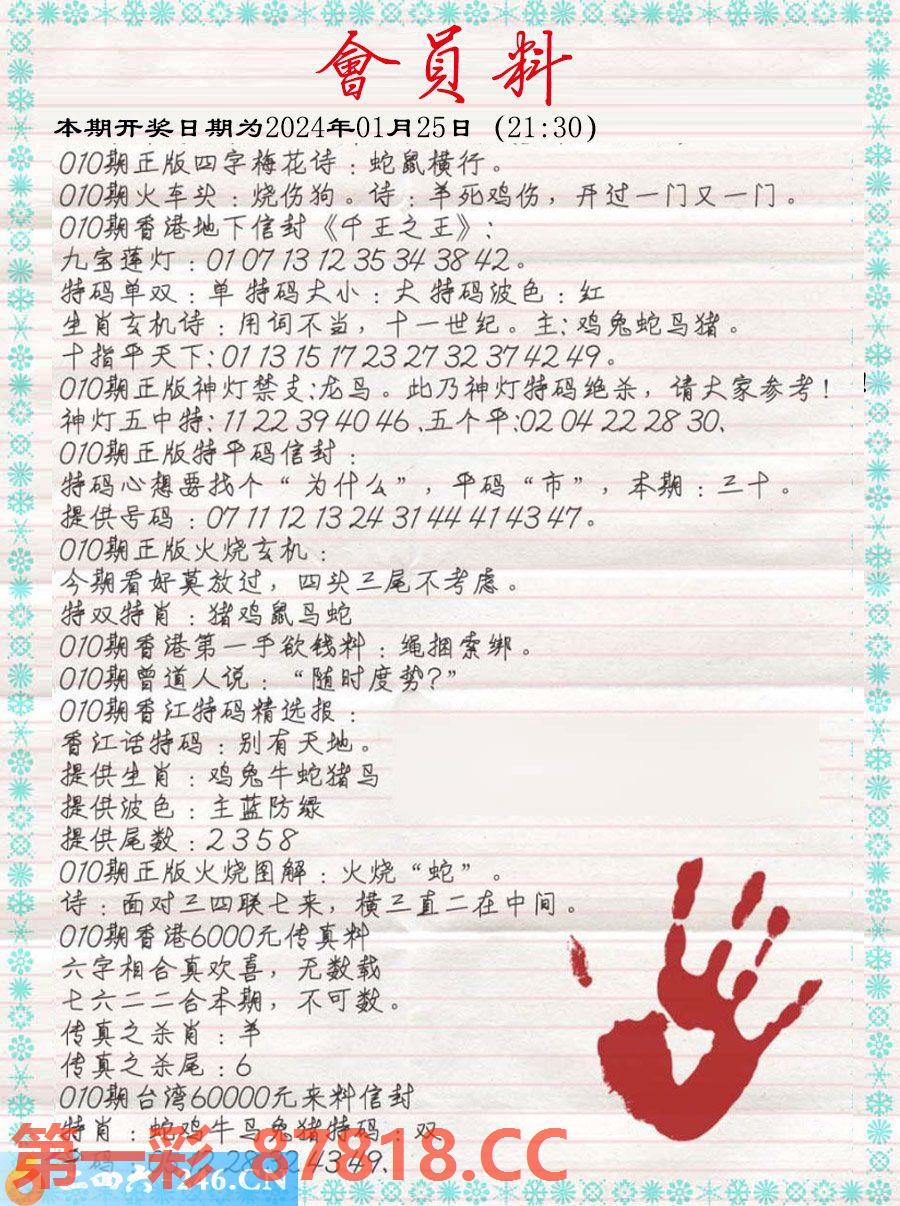 會員料
本期开奖日期为2024年01月25日（21:30）
010期正版四字梅花诗：蛇鼠横行。
010期火车头：烧伤狗。诗：羊死鸡伤，开过一门又一门。
010期香港地下信封《千王之王》：
九宝莲灯：01 07 13 12 35 34 38 42。
特码单双：单 特码大小：大 特码波色：红
生肖玄机诗：用词不当，十一世纪。主：鸡兔蛇马猪。
十指平天下：01 13 15 17 23 27 32 37 42 49。
010期正版神灯禁支：龙马。此乃神灯特码绝杀，请大家参考！
神灯五中特：11 22 39 40 46 、五个平：02 04 22 28 30、
010期正版特平码信封：
特码心想要找个“为什么”，平码“市”，本期：三十。
提供号码：07 11 12 13 24 31 44 41 43 47。
010期正版火烧玄机：
今期看好莫放过，四头三尾不考虑。
特双特肖：猪鸡鼠马蛇
010期香港第一手欲钱料：绳捆索绑。
010期曾道人说：“随时度势？”
010期香江特码精选报：
香江话特码：别有天地。
提供生肖：鸡兔牛蛇猪马
提供波色：主蓝防绿
提供尾数：2 3 5 8
010期正版火烧图解：火烧“蛇”。
诗：面对三四联七来，横三直二在中间。
010期香港6000元传真料
六字相合真欢喜，无数载
七六二二合本期，不可数。
传真之杀肖：羊
传真之杀尾：6
010期台湾60000元来料信封
特肖：蛇鸡牛马兔猪特码：双
28 32 43 49、
第一彩 87818.CC
二四六 246.CN